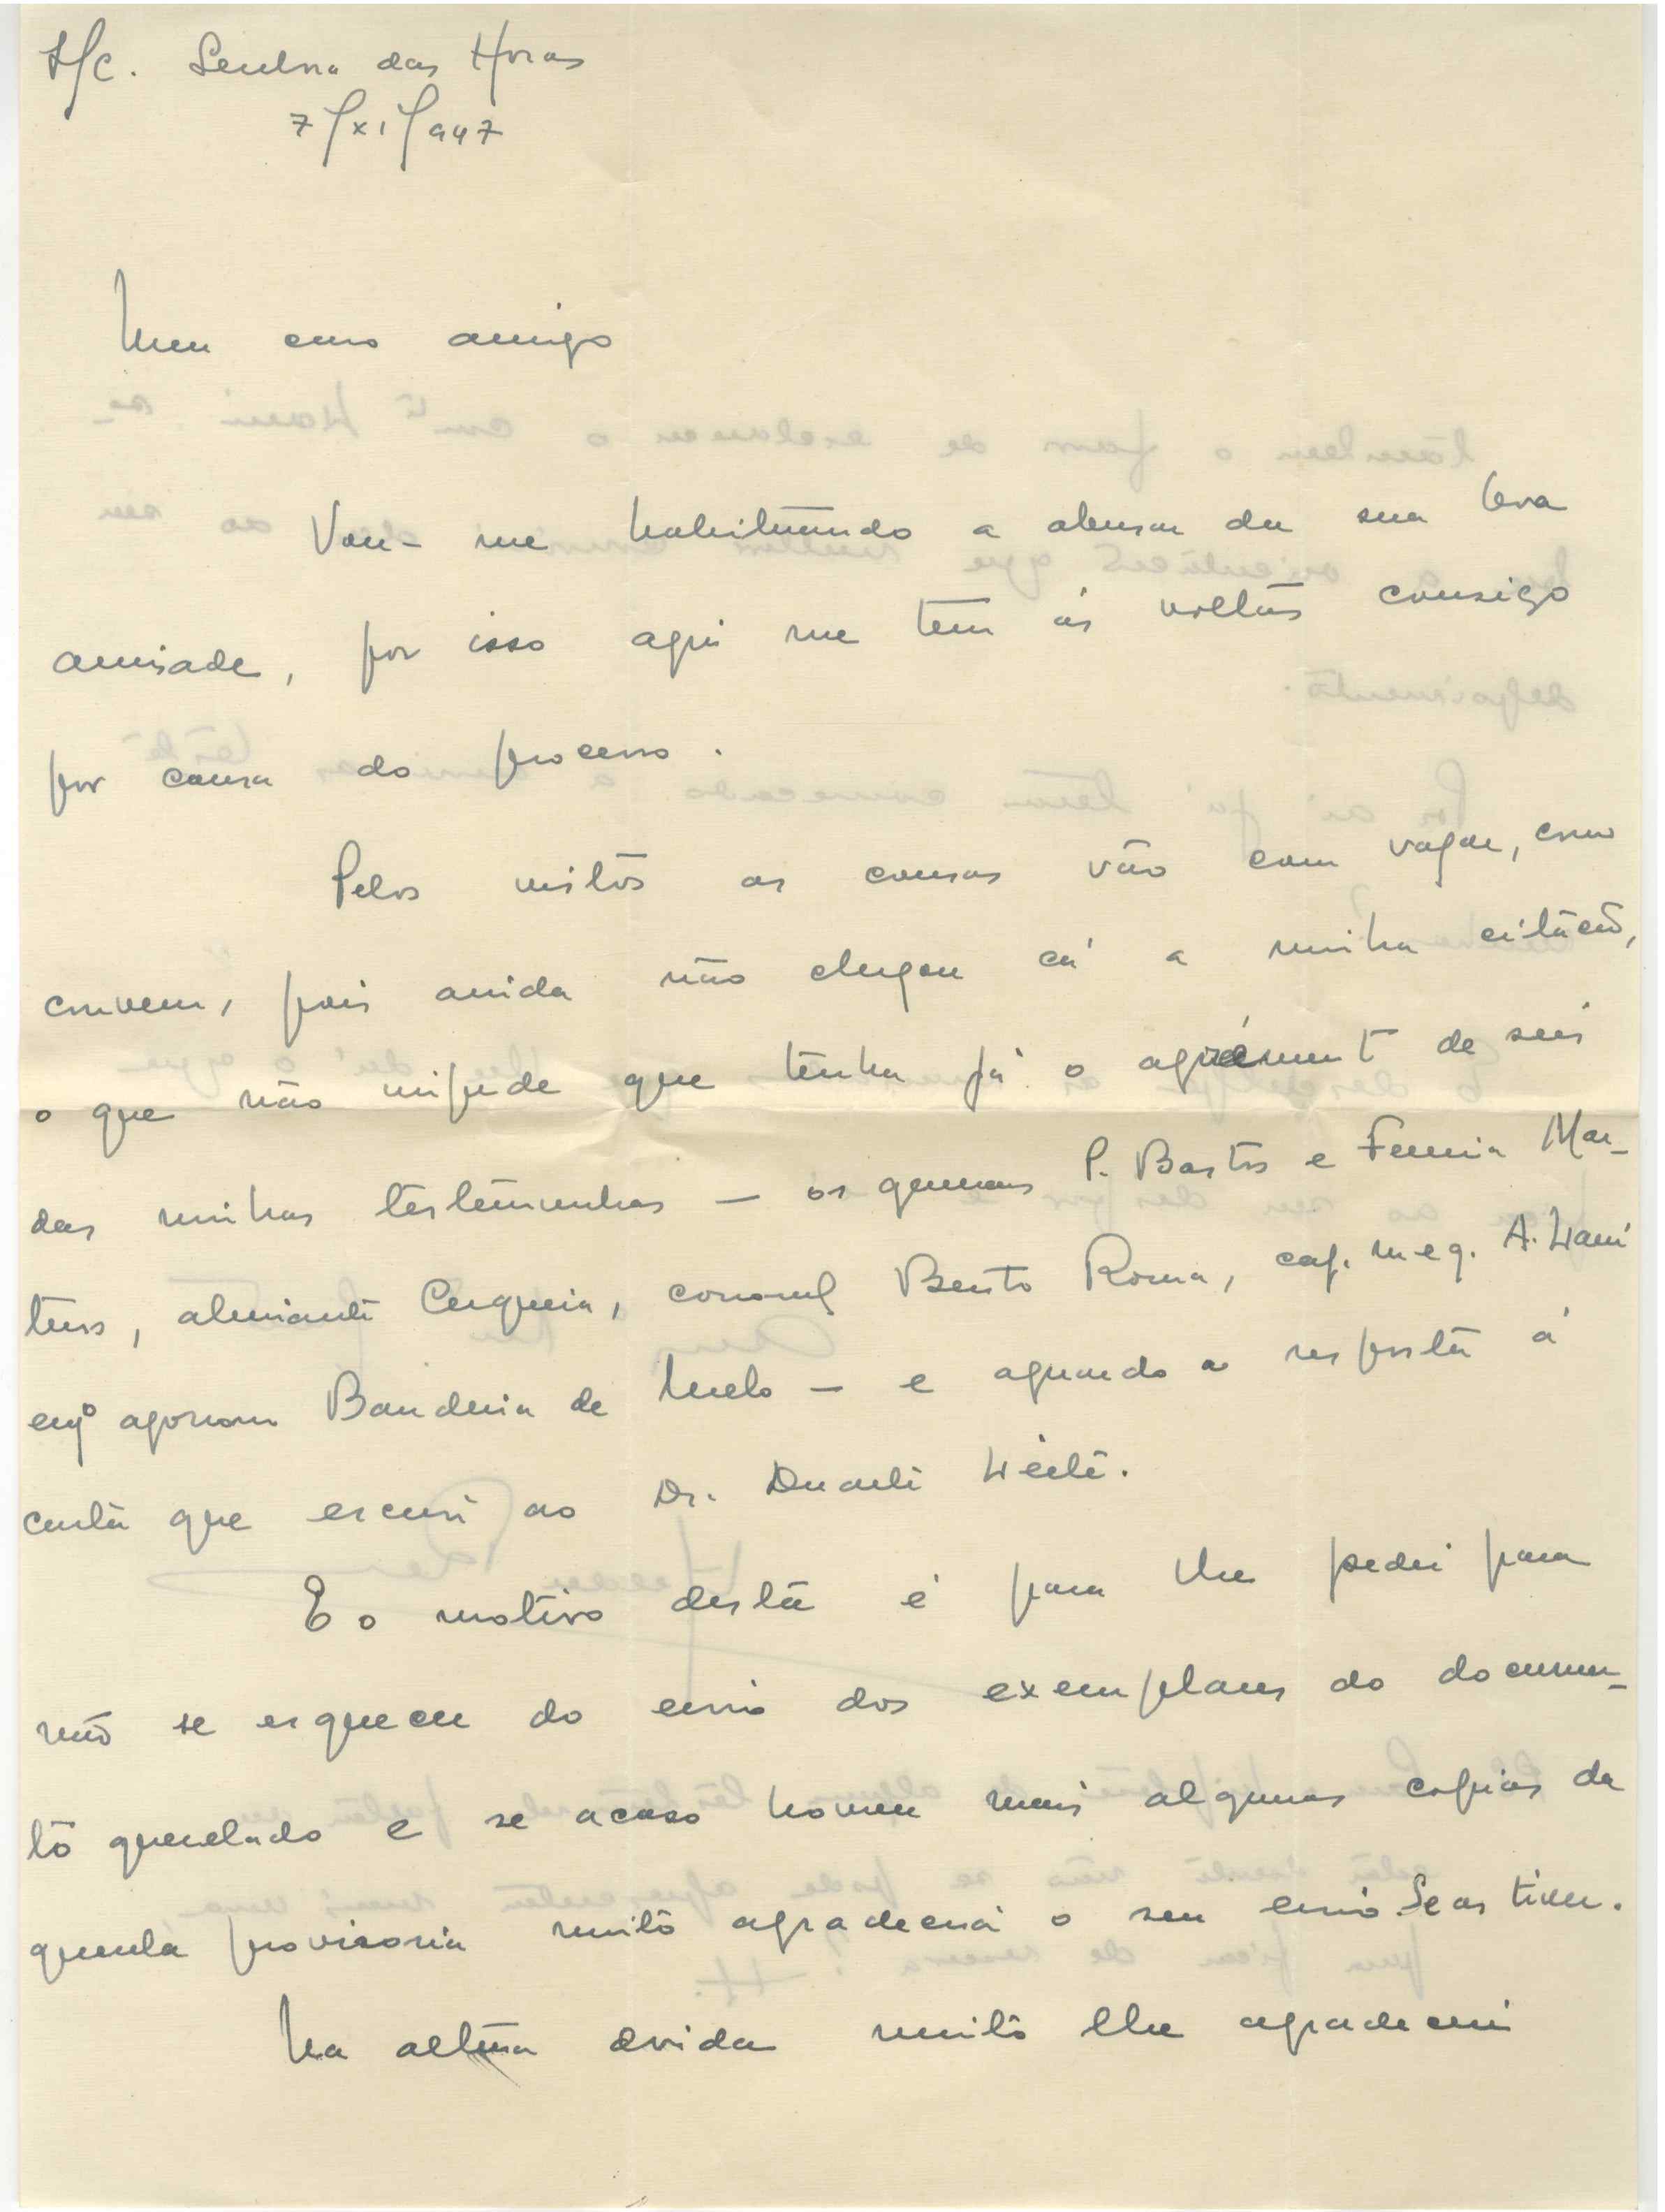 S/c. Senhora das Horas
7/XI/947
Meu caro amigo
Vou-me habituando a abusar da sua boa
amisade, por isso aqui me tem ás voltas consigo
por causa do processo.
Pelos vistos as cousas vão com vagar, como
convem, pois ainda não chegou cá a minha citação,
o que não impede que tenha já o agrément de seis
das minhas testemunhas — os generais P. Bastos e Ferreira Mar-
tins, almirante Cerqueira, coronel Bento Roma, cap. m e g.
engº agronom Bandeira de Melo — e aguardo a resposta á
carta que escrevi ao Dr. Duarte Leite.
E o motivo desta é para lhe pedir para
não se esquecer do envio dos exemplares do documen-
to querelado e se acaso houver mais algumas copias da
querela provisoria muito agradecerá o seu envio se as tiver.
Na altura devida muito lhe agradecerei